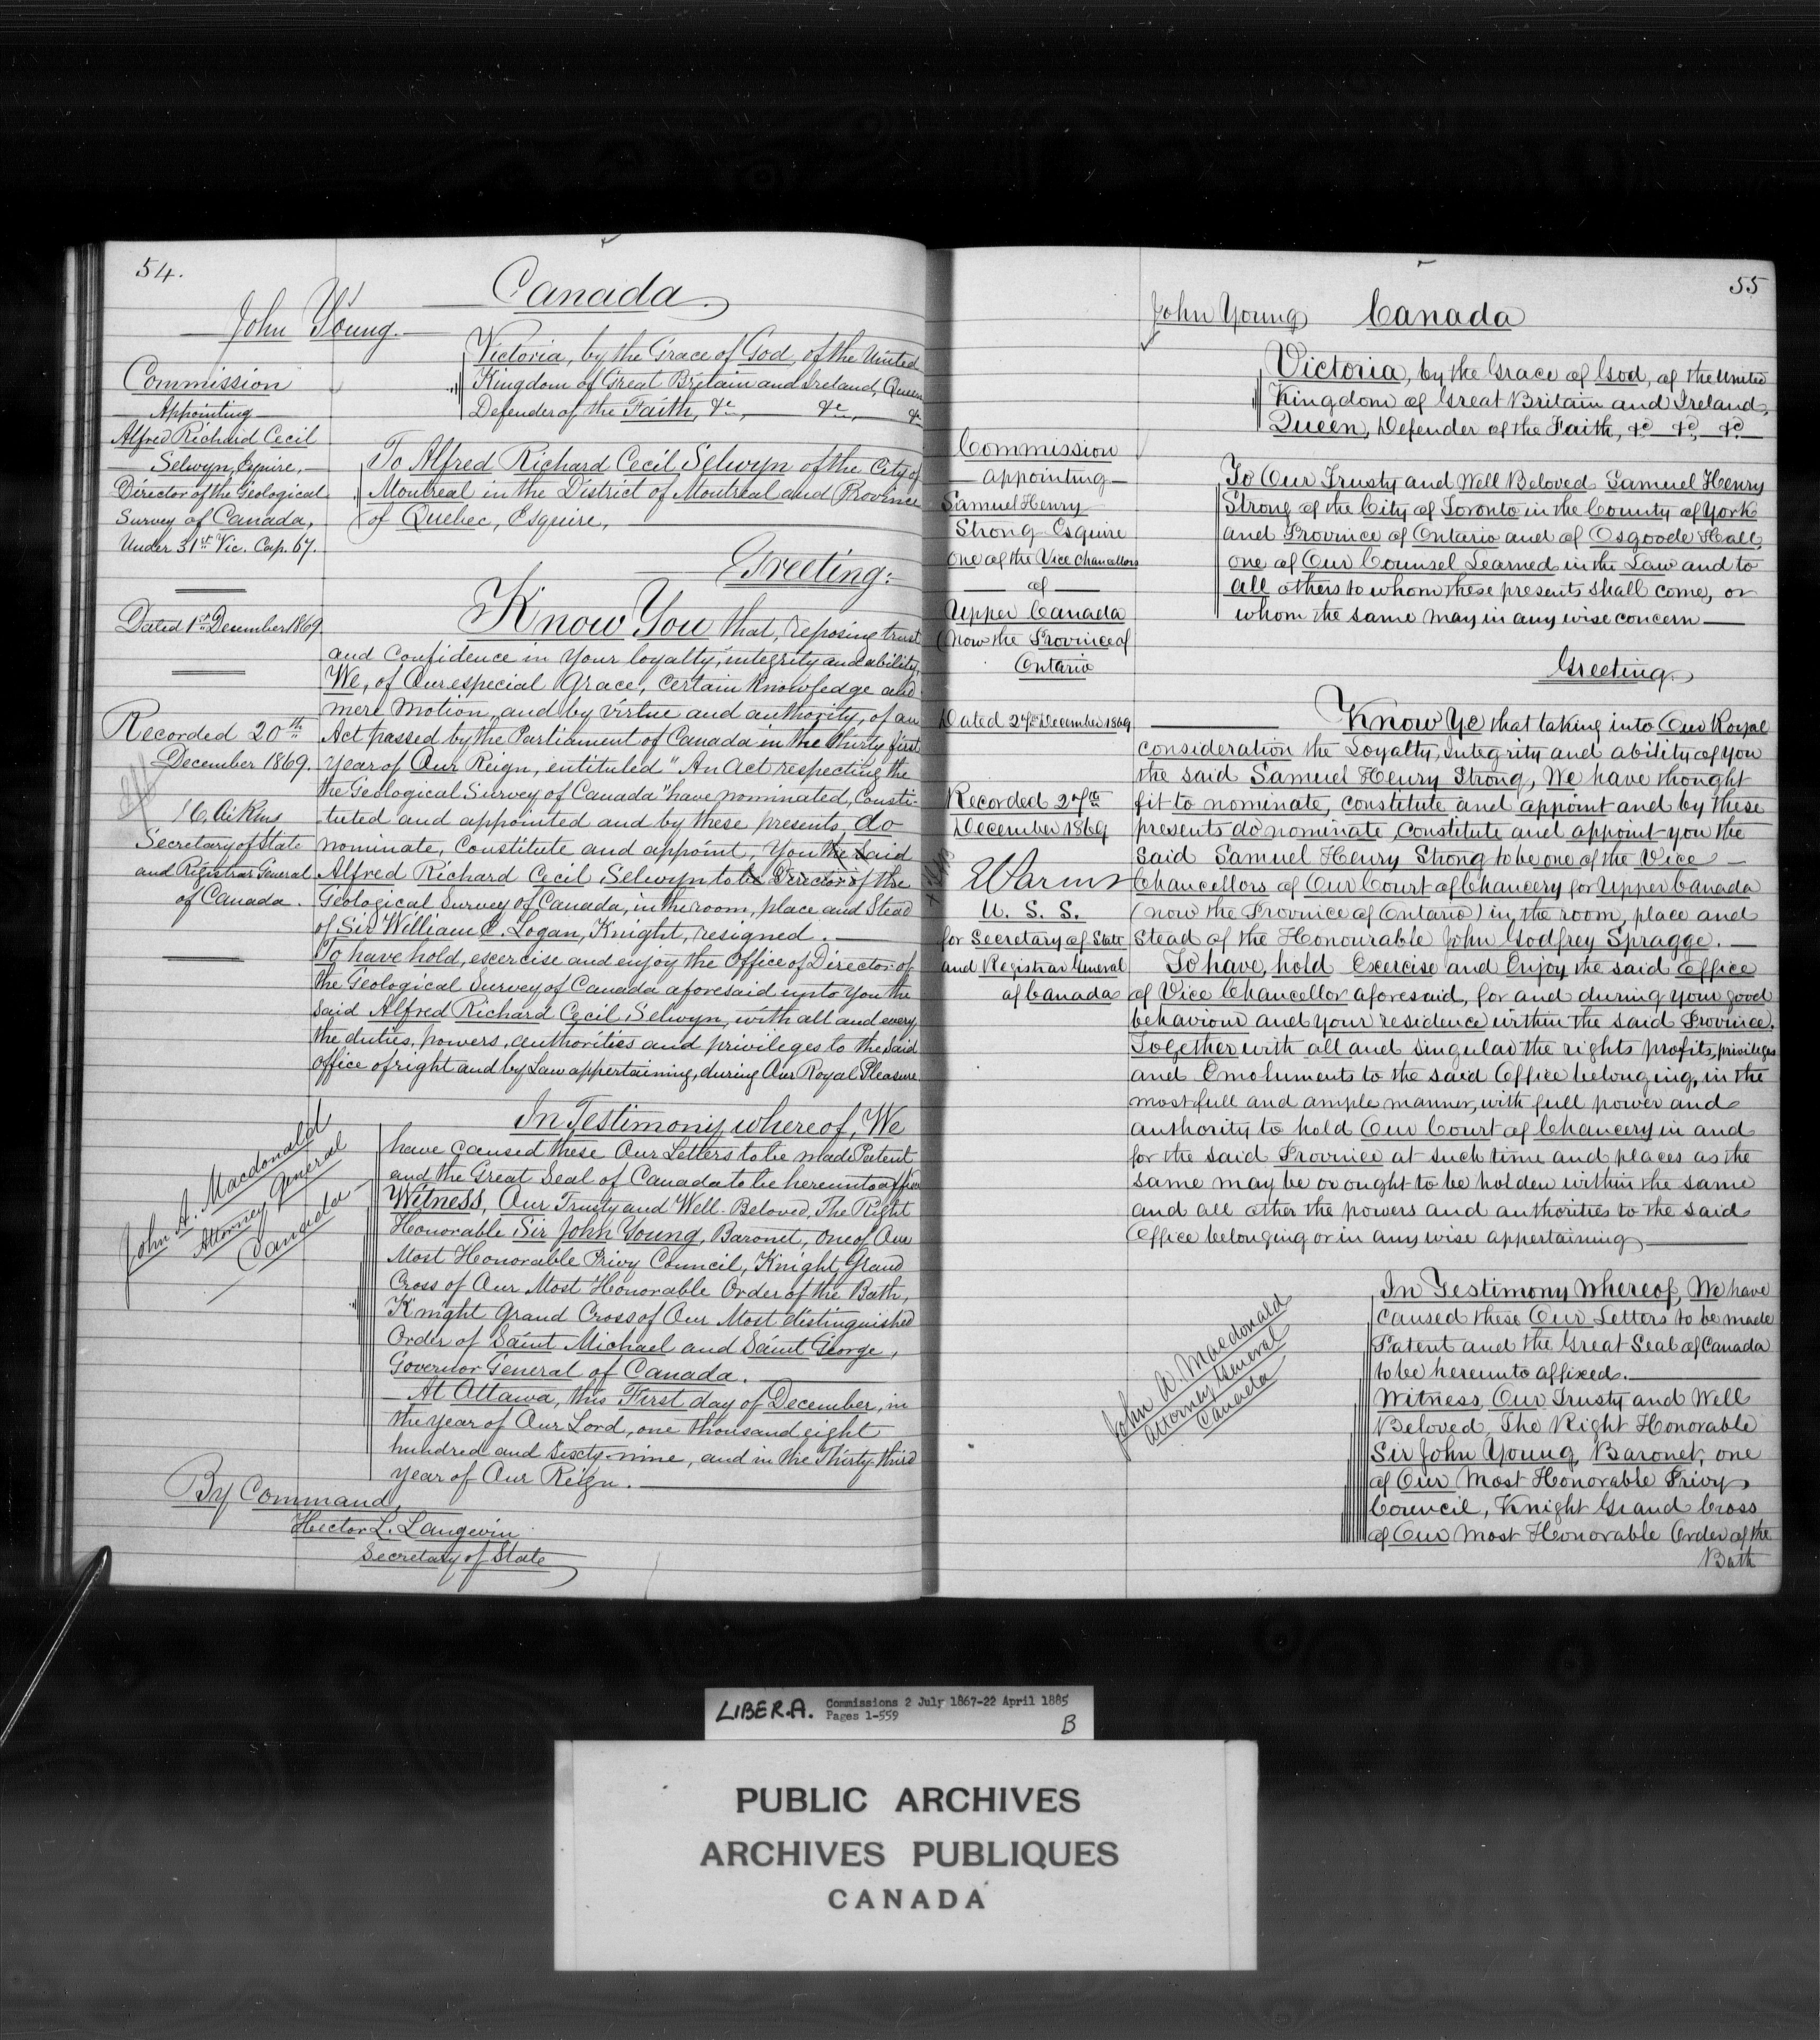 54.
Canada
John Young.
Commission
Appointing
Alfred Richard Cecil
Selwyn, Esquire,
Director of the Geological
Survey of Canada,
Under 31st Vic. Cap. 67.
Dated 1st December 1869
Recorded 20th
December 1869.
Aikins
Secretary of State
and Registrar General
of Canada.
Victoria, by the Grace of God, of the United
Kingdom of Great Britain and Ireland, Queen
Defender of the Faith, &c, &c, &c
To Alfred Richard Cecil Selwyn of the City of
Montreal in the District of Montreal and Province
of Quebec, Esquire,
Greeting:
Know You that, reposing trust
and confidence in Your loyalty, integrity and ability,
We, of Our especial Grace, certain knowledge and
mere motion, and by virtue and authority, of an
Act passed by the Parliament of Canada in the thirty first
year of Our Reign, entituled "An Act respecting the
the Geological Survey of Canada" have nominated, Consti-
tuted and appointed and by these presents, do
nominate, Constitute and appoint, You the said
Alfred Richard Cecil Selwyn to be Director of the
Geological Survey of Canada, in the room, place and Stead
of Sir William E. Logan, Knight, resigned.
To have hold, exercise and enjoy the Office of Director of
the Geological Survey of Canada aforesaid unto You the
said Alfred Richard Cecil Selwyn, with all and every
the duties, powers, authorities and privileges to the said
office of right and by Law appertaining, during Our Royal Pleasure.
In Testimony whereof, We
have caused these Our Letters to be made Patent
and the Great Seal of Canada to be hereunto affixed
Witness, Our Trusty and Well-Beloved, The Right
Honorable Sir John Young, Baronet, one of Our
Most Honorable Privy Council, Knight Grand
Cross of Our Most Honorable Order of the Bath,
Knight Grand Cross of Our Most distinguished
Order of Saint Michael and Saint George,
Governor General of Canada.
At Ottawa, this First day of December, in
the year of Our Lord, one thousand eight
hundred and sixty-nine, and in the Thirty third
year of Our Reign.
John A. Macdonald
Attorney General
Canada
By Command,
Hector L. Langevin
Secretary of State
55
John Young Canada
Commission
appointing
Samuel Henry
Strong Esquire
one of the Vice Chancellors
of
Upper Canada
(Now the Province of
Ontario
Dated 27th December 1869
Recorded 27th
December 1869
U. S. S.
for Secretary of State
and Registrar General
of Canada
Victoria, by the Grace of God, of the United
Kingdom of Great Britain and Ireland,
Queen, Defender of the Faith, &c &c, &c
To Our Trusty and Well Beloved Samuel Henry
Strong of the City of Toronto in the County of York
and Province of Ontario and of Osgoode Hall,
one of Our Counsel Learned in the Law and to
all others to whom these presents shall come, or
whom the same may in any wise concern
Greeting
Know Ye that taking into Our Royal
consideration the Loyalty, Integrity and ability of you
the said Samuel Henry Strong, We have thought
fit to nominate, constitute and appoint and by these
presents do nominate constitute and appoint you the
said Samuel Henry Strong to be one of the Vice
Chancellors of Our Court of Chancery for Upper Canada
(now the Province of Ontario) in the room, place and
Stead of the Honourable John Godfrey Spragge.
To have, hold Exercise and Enjoy the said Office
of Vice Chancellor aforesaid, for and during your good
behaviour and your residence within the said Province.
Together with all and singular the rights profits, privileges
and Emoluments to the said Office belonging, in the
most full and ample manner, with full power and
authority to hold Our Court of Chancery in and
for the said Province at such time and places as the
same may be or ought to be holden within the same
and all other the powers and authorities to the said
Office belonging or in any wise appertaining
In Testimony Whereof, We have
caused these Our Letters to be made
Patent and the Great Seal of Canada
to be hereunto affixed.
Witness Our Trusty and Well
Beloved The Right Honorable
Sir John Young, Baronet, one
of Our Most Honorable Privy
Council, Knight Grand Cross
of Our Most Honorable Order of the
Bath
John A. Macdonald
Attorney General
Canada
LIBER.A. Commissions 2 July 1867-22 April 1885
Pages 1-559
B
PUBLIC ARCHIVES
ARCHIVES PUBLIQUES
CANADA